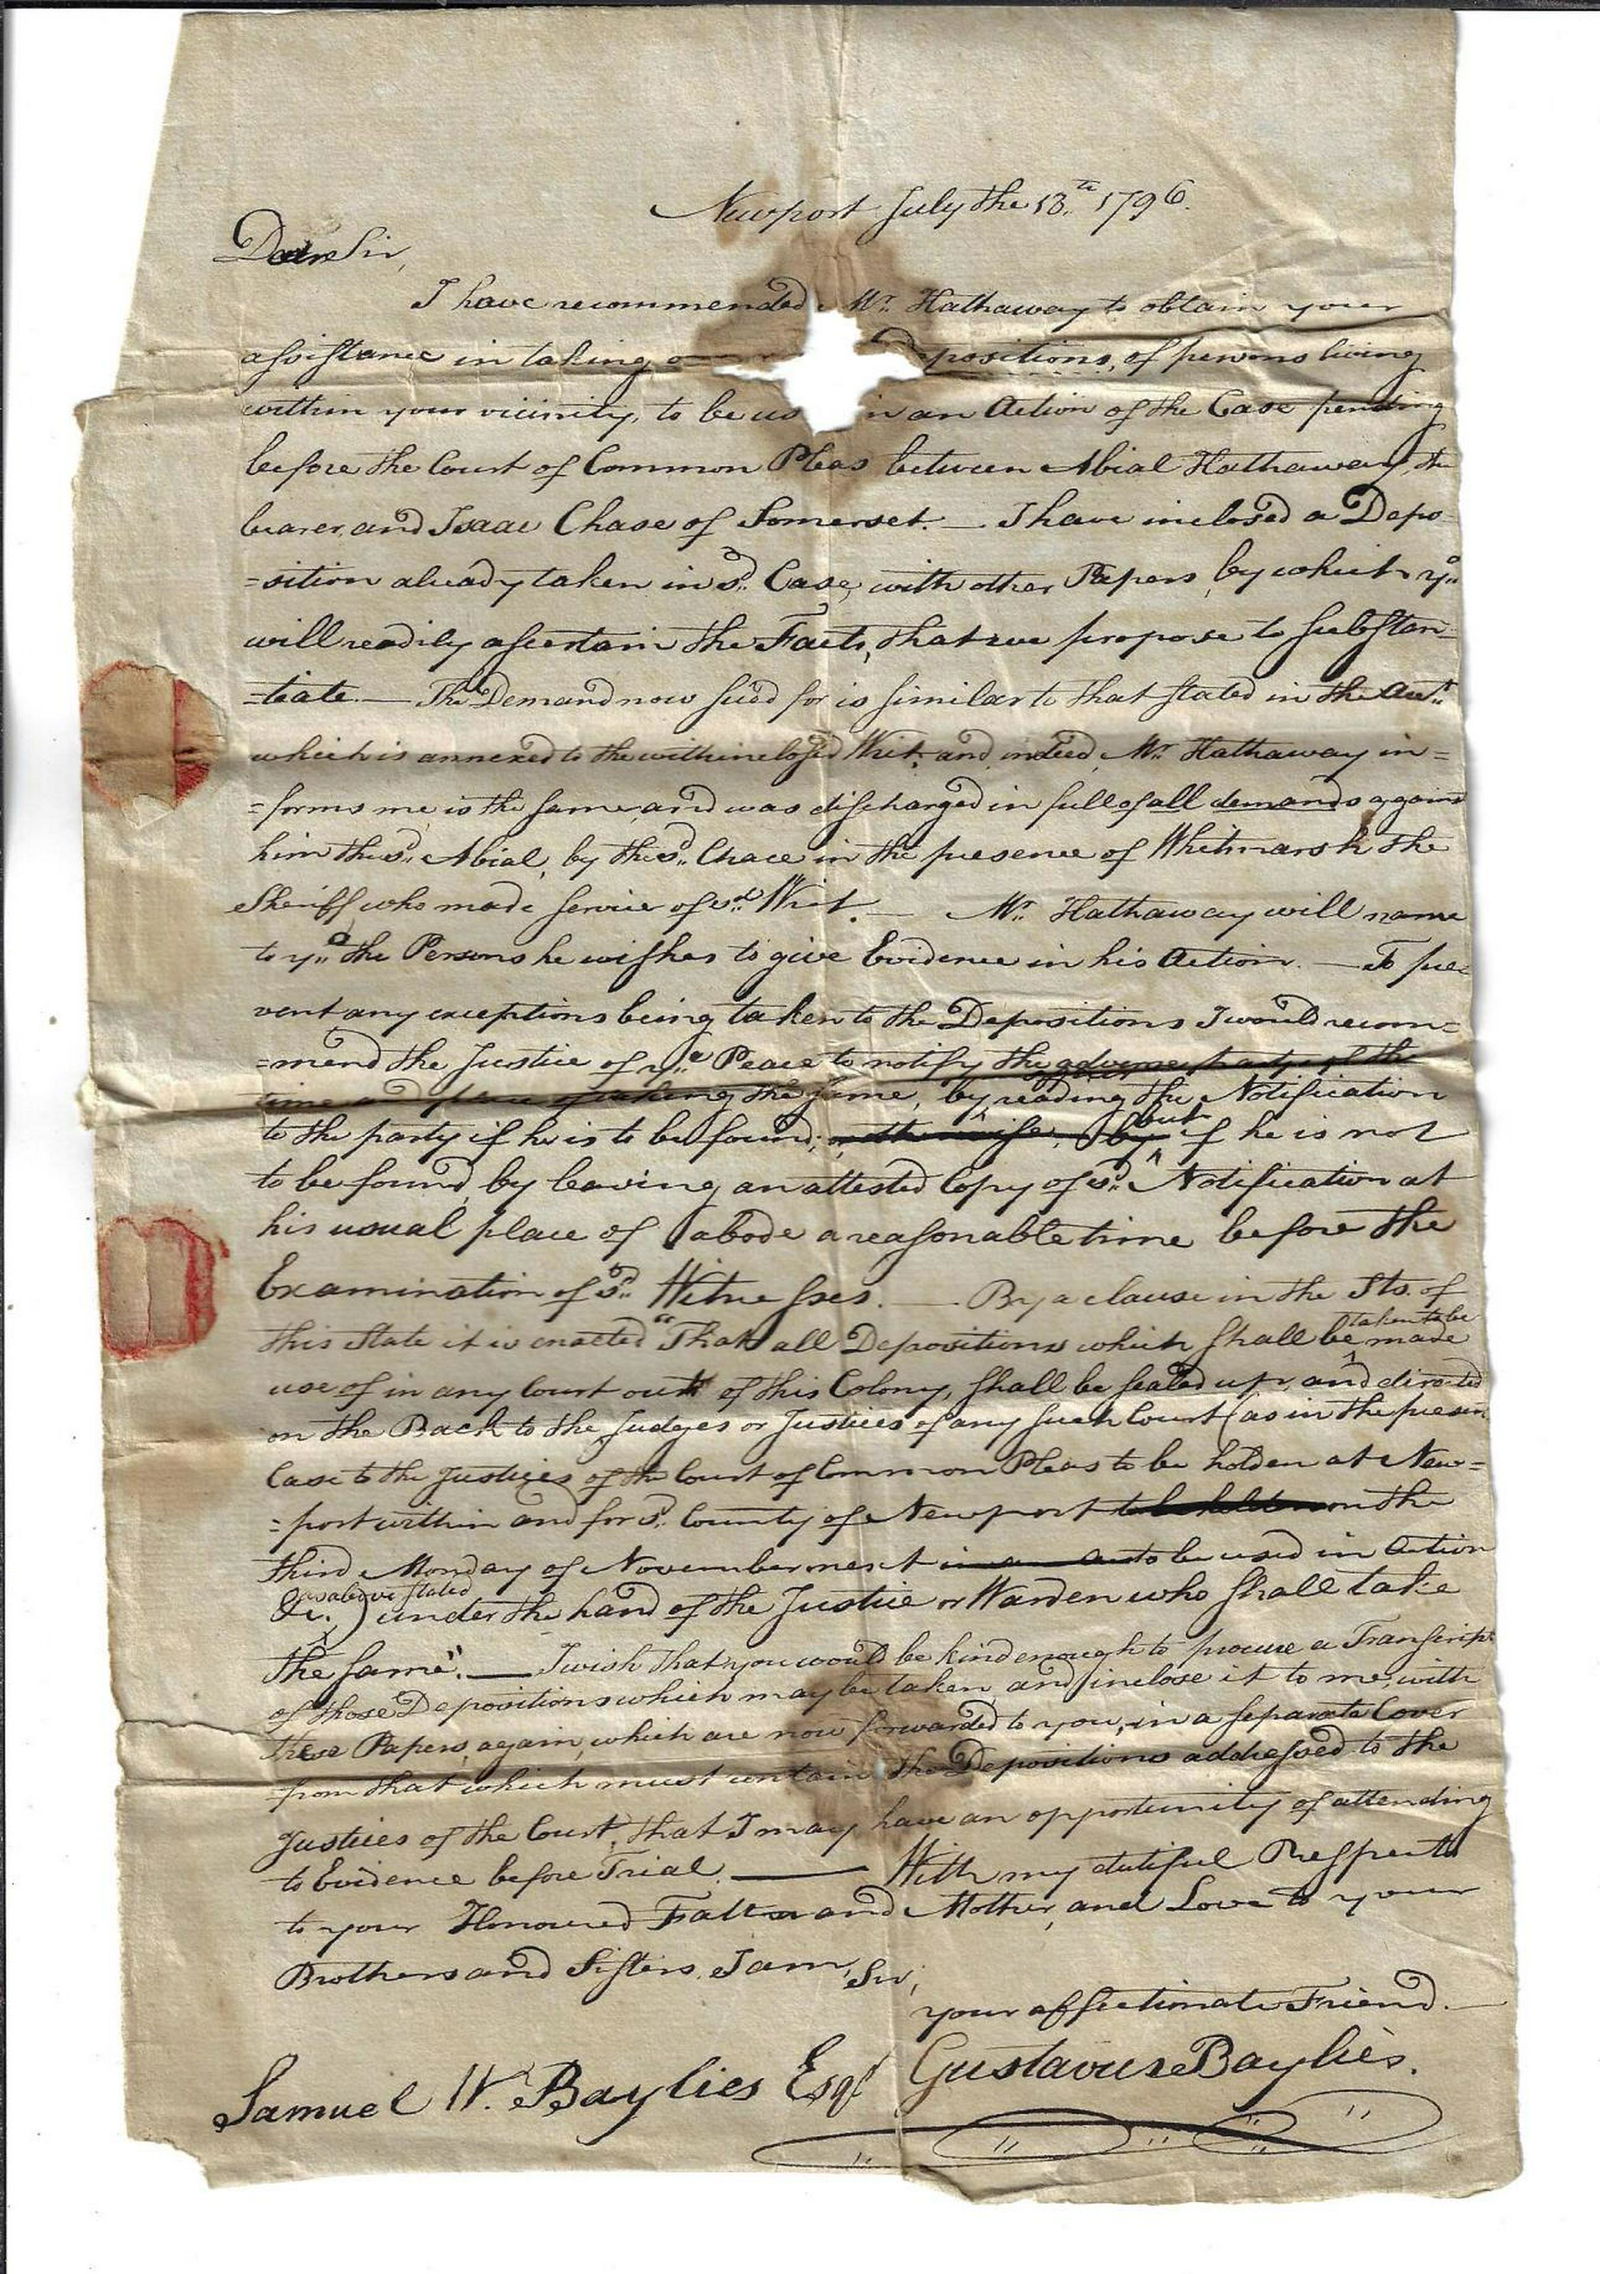 Newport July the 13.th 1796.
Dear Sir,
I have recommended Mr. Hathaway to obtain your
assistance in taking Depositions, of persons living
within your vicinity, to be us in an Action of the Case pending
before the Court of Common Pleas between Abial Hathaway, the
bearer, and Isaac Chase of Somerset. — I have inclosed a Depo-
=sition already taken in sd. Case, with other Papers, by which yo.
will readily ascertain the Facts, that we propose to substan-
=tiate. — The Demand now sued for is similar to that stated in the Acct.
which is annexed to the within closed Writ, and, indeed, Mr. Hathaway in=
=forms me, is the same, and was discharged in full of all demands against
him the sd. Abial, by the sd. Chace in the presence of Whitmarsh the
Sheriff who made service of sd. Writ. — Mr. Hathaway will name
to yo. the Persons he wishes to give Evidence in his Action. — To pre=
vent any exceptions being taken to the Depositions I would recom=
=mend the Justice of ye. Peace to notify the adverse party of the
time and place of taking the same, by reading the Notification
to the party if he is to be found; otherwise, by but if he is not
to be found, by leaving an attested Copy of sd. Notification at
his usual place of abode a reasonable time before the
Examination of sd. Witnesses. — By a clause in the Sts. of
this State it is enacted "That all Depositions which shall be taken to be made
use of in any Court out of this Colony, shall be sealed up, and directed
on the Back to the Judges or Justices of any such Court (as in the present
Case to the Justices of the Court of Common Pleas to be holden at New=
=port within and for sd. County of Newport to be holden on the
third Monday of November next to be used in Action
&c. as above stated) under the hand of the Justice or Warden who shall take
the same". — I wish that you would be kind enough to procure a Transcript
of those Depositions which may be taken, and inclose it to me, with
these Papers, again, which are now forwarded to you, in a separate Cover
from that which must contain the Depositions addressed to the
Justices of the Court, that I may have an opportunity of attending
to Evidence before Trial. — With my dutiful Respects
to your Honoured Father and Mother, and Love to your
Brothers and Sisters, I am, Sir,
your affectionate Friend. —
Gustavus Baylies.
Samuel W. Baylies Esqr